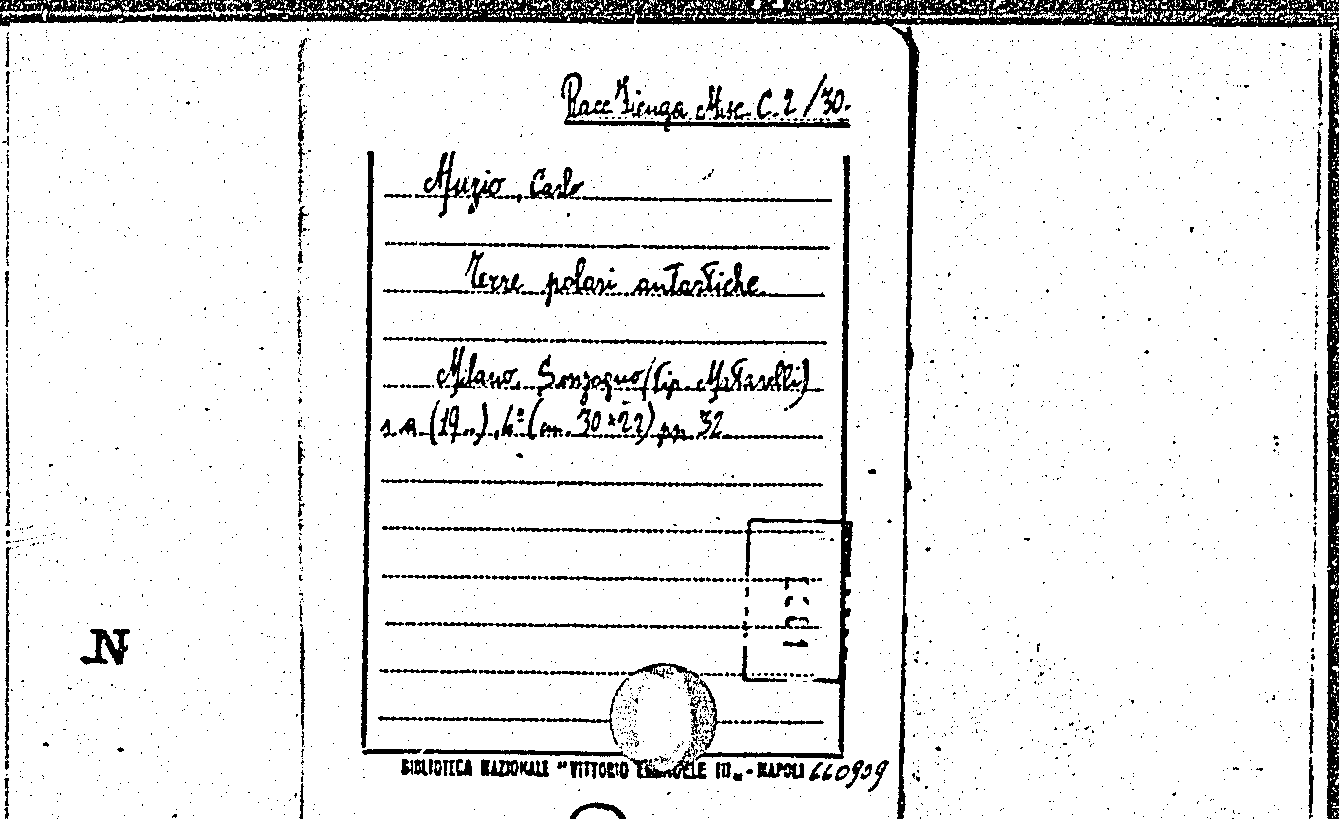 Racc Vienga Misc. C. 2 /30.
Muzio, Carlo
Terre polari antartiche
Milano, Sonzogno (Tip. Matarelli)
s. a. (19..), 4º (cm. 30 × 22) pp. 32
BIBLIOTECA NAZIONALE "VITTORIO EMANUELE III" - NAPOLI 660909
N